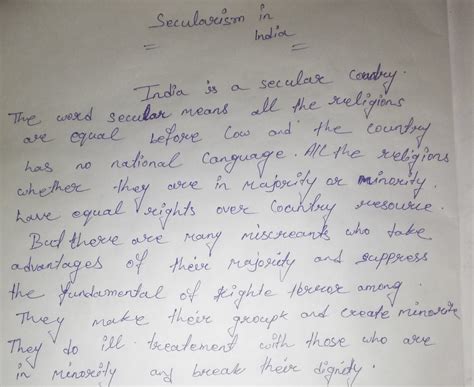 Secularism in
India
India is a secular country.
The word secular means all the religions
are equal before law and the country
has no national language. All the religions
whether they are in majority or minority.
have equal rights over country resource.
But there are many miscreants who take
advantages of their majority and suppress
the fundamental of Righte terror among.
They make their groups and create minorite
They do ill treatement with those who are
in minority and break their dignity.